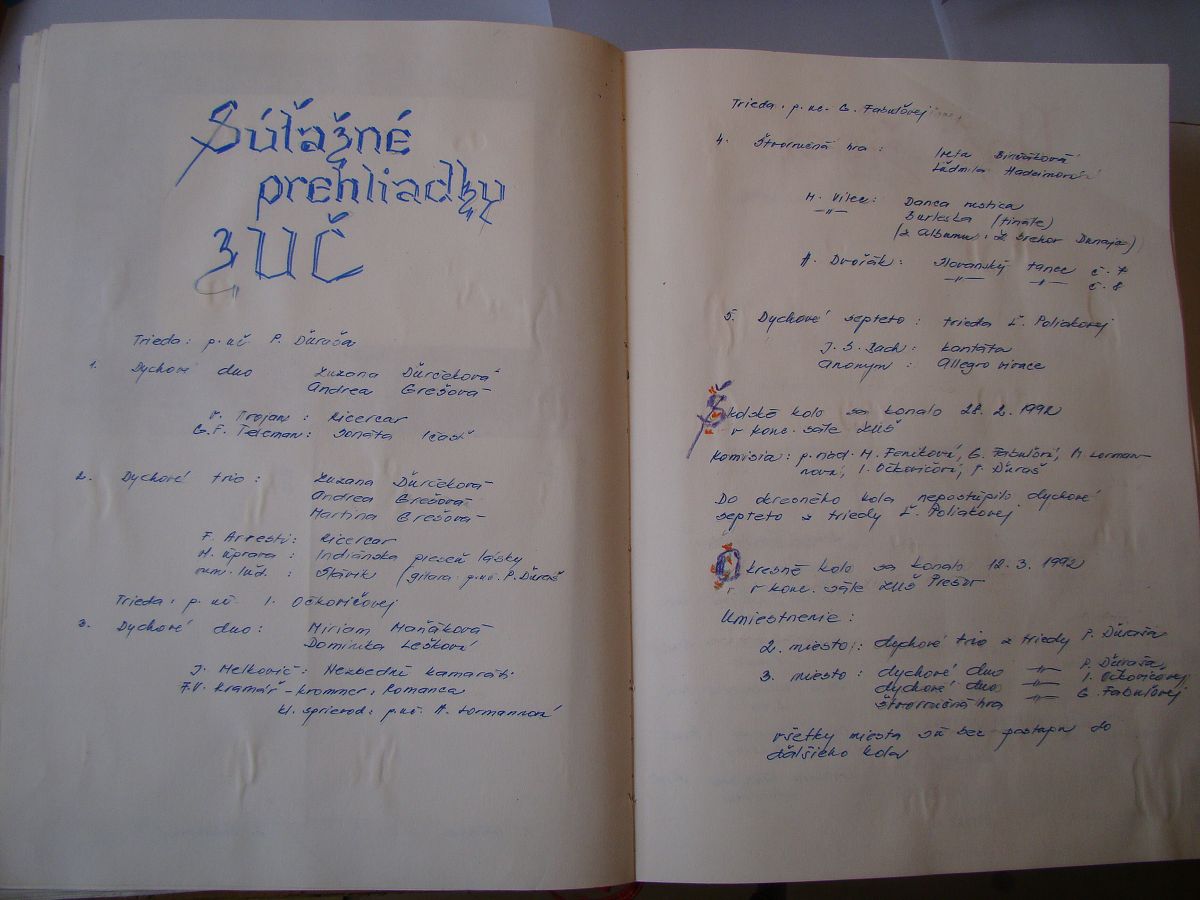 Súťažné
prehliadky
ZUČ
Trieda: p. uč. P. Ďuraša
1. Dychové duo Zuzana Ďurčeková
Andrea Grešová
V. Trojan: Ricercar
G. F. Teleman: Sonáta I časť
2. Dychové trio: Zuzana Ďurčeková
Andrea Grešová
Martina Grešová
F. Arresti: Ricercar
M. úprava: Indiánska pieseň lásky
rum. ľud.: Slávik (gitara: p. uč. P. Ďuraš
Trieda: p. uč. I. Očkovičovej
3. Dychové duo: Miriam Maňáková
Dominika Lešková
J. Melkovič: Nezbední kamaráti
F. V. Kramář-Krommer: Romanca
kl. sprievod: p. uč. A. Lormannová
Trieda: p. uč. G. Fabuľovej
4. Štvorručná hra: Iveta
Ľudmila
M. Vilec: Danca rustica
—"— Burleska (finále)
(z albumu: Z brehov Dunaja)
A. Dvořák: Slovanský tanec č. 7
—"— —"— č. 8
5. Dychové septeto: trieda Ľ. Poliakovej
J. S. Bach: kantáta
Anonym: Allegro vivace
Školské kolo sa konalo 28. 2. 1992
v konc. sále ZUŠ
Komisia: p. uč. M. Feníková, G. Fabuľová, M. Lorman-
nová, I. Očkovičová, P. Ďuraš
Do okresného kola nepostúpilo dychové
septeto z triedy Ľ. Poliakovej
Okresné kolo sa konalo 12. 3. 1992
v konc. sále ZUŠ Prešov
Umiestnenie:
2. miesto: dychové trio z triedy P. Ďuraša
3. miesto: dychové duo —"— P. Ďuraša,
dychové duo —"— I. Očkovičovej
štvorručná hra —"— G. Fabuľovej
všetky miesta sú bez postupu do
ďalšieho kola